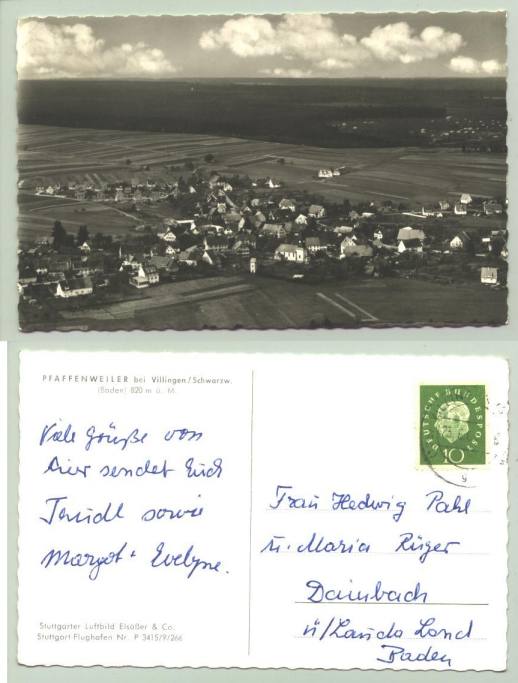 PFAFFENWEILER bei Villingen/Schwarzw.
(Baden) 820 m ü. M.
Viele Grüße von
hier sendet Euch
sowie
Margot + Evelyne.
Stuttgarter Luftbild Elsäßer & Co.
Stuttgart-Flughafen Nr. P 3415/9/266
DEUTSCHE BUNDESPOST
10
Frau Hedwig Pahl
u. Maria Rüger
Dainbach
ü/Lauda Land
Baden